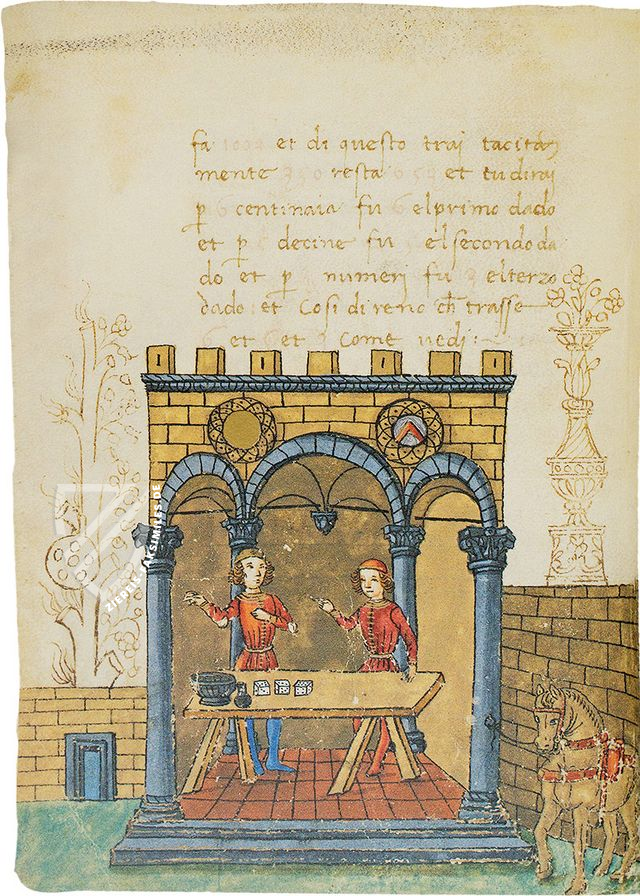 fa 1002 et di questo trai tacita
mente 350 resta 652 et tu dirai
p 6 centinaia fu 6 el primo dado
et p 5 decine fu 5 el secondo da
do et p 2 numeri fu 2 el terzo
dado: et Cosi direno ch trasse
6 et 5 et 2 Come vedi: